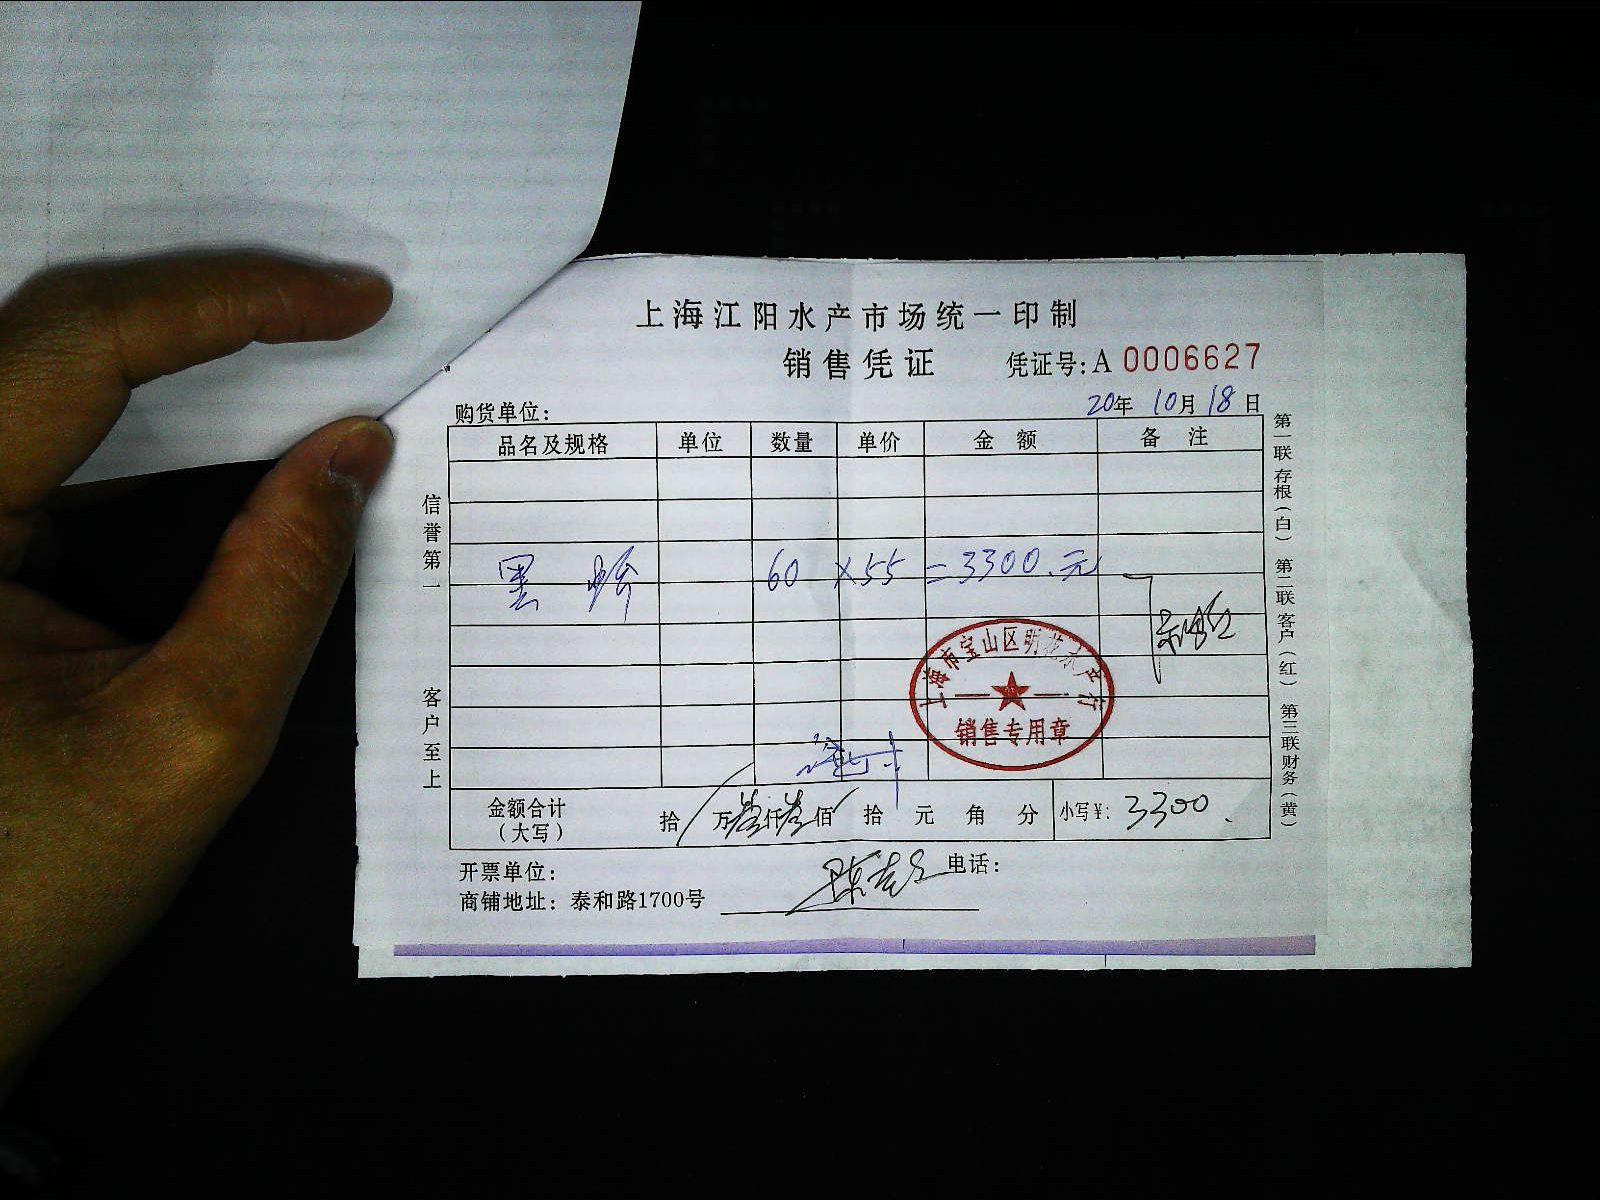 上海江阳水产市场统一印制
销售凭证 凭证号:A 0006627
购货单位: 20年 10月 18日
品名及规格 单位 数量 单价 金 额 备 注
黑 60 ×55 =3300.元
上海市宝山区明 水产行
销售专用章
金额合计
(大写) 拾 万叁仟叁佰 拾 元 角 分 小写¥: 3300.
开票单位: 电话:
商铺地址: 泰和路1700号
信誉第一 客户至上
第一联存根(白) 第二联客户(红) 第三联财务(黄)